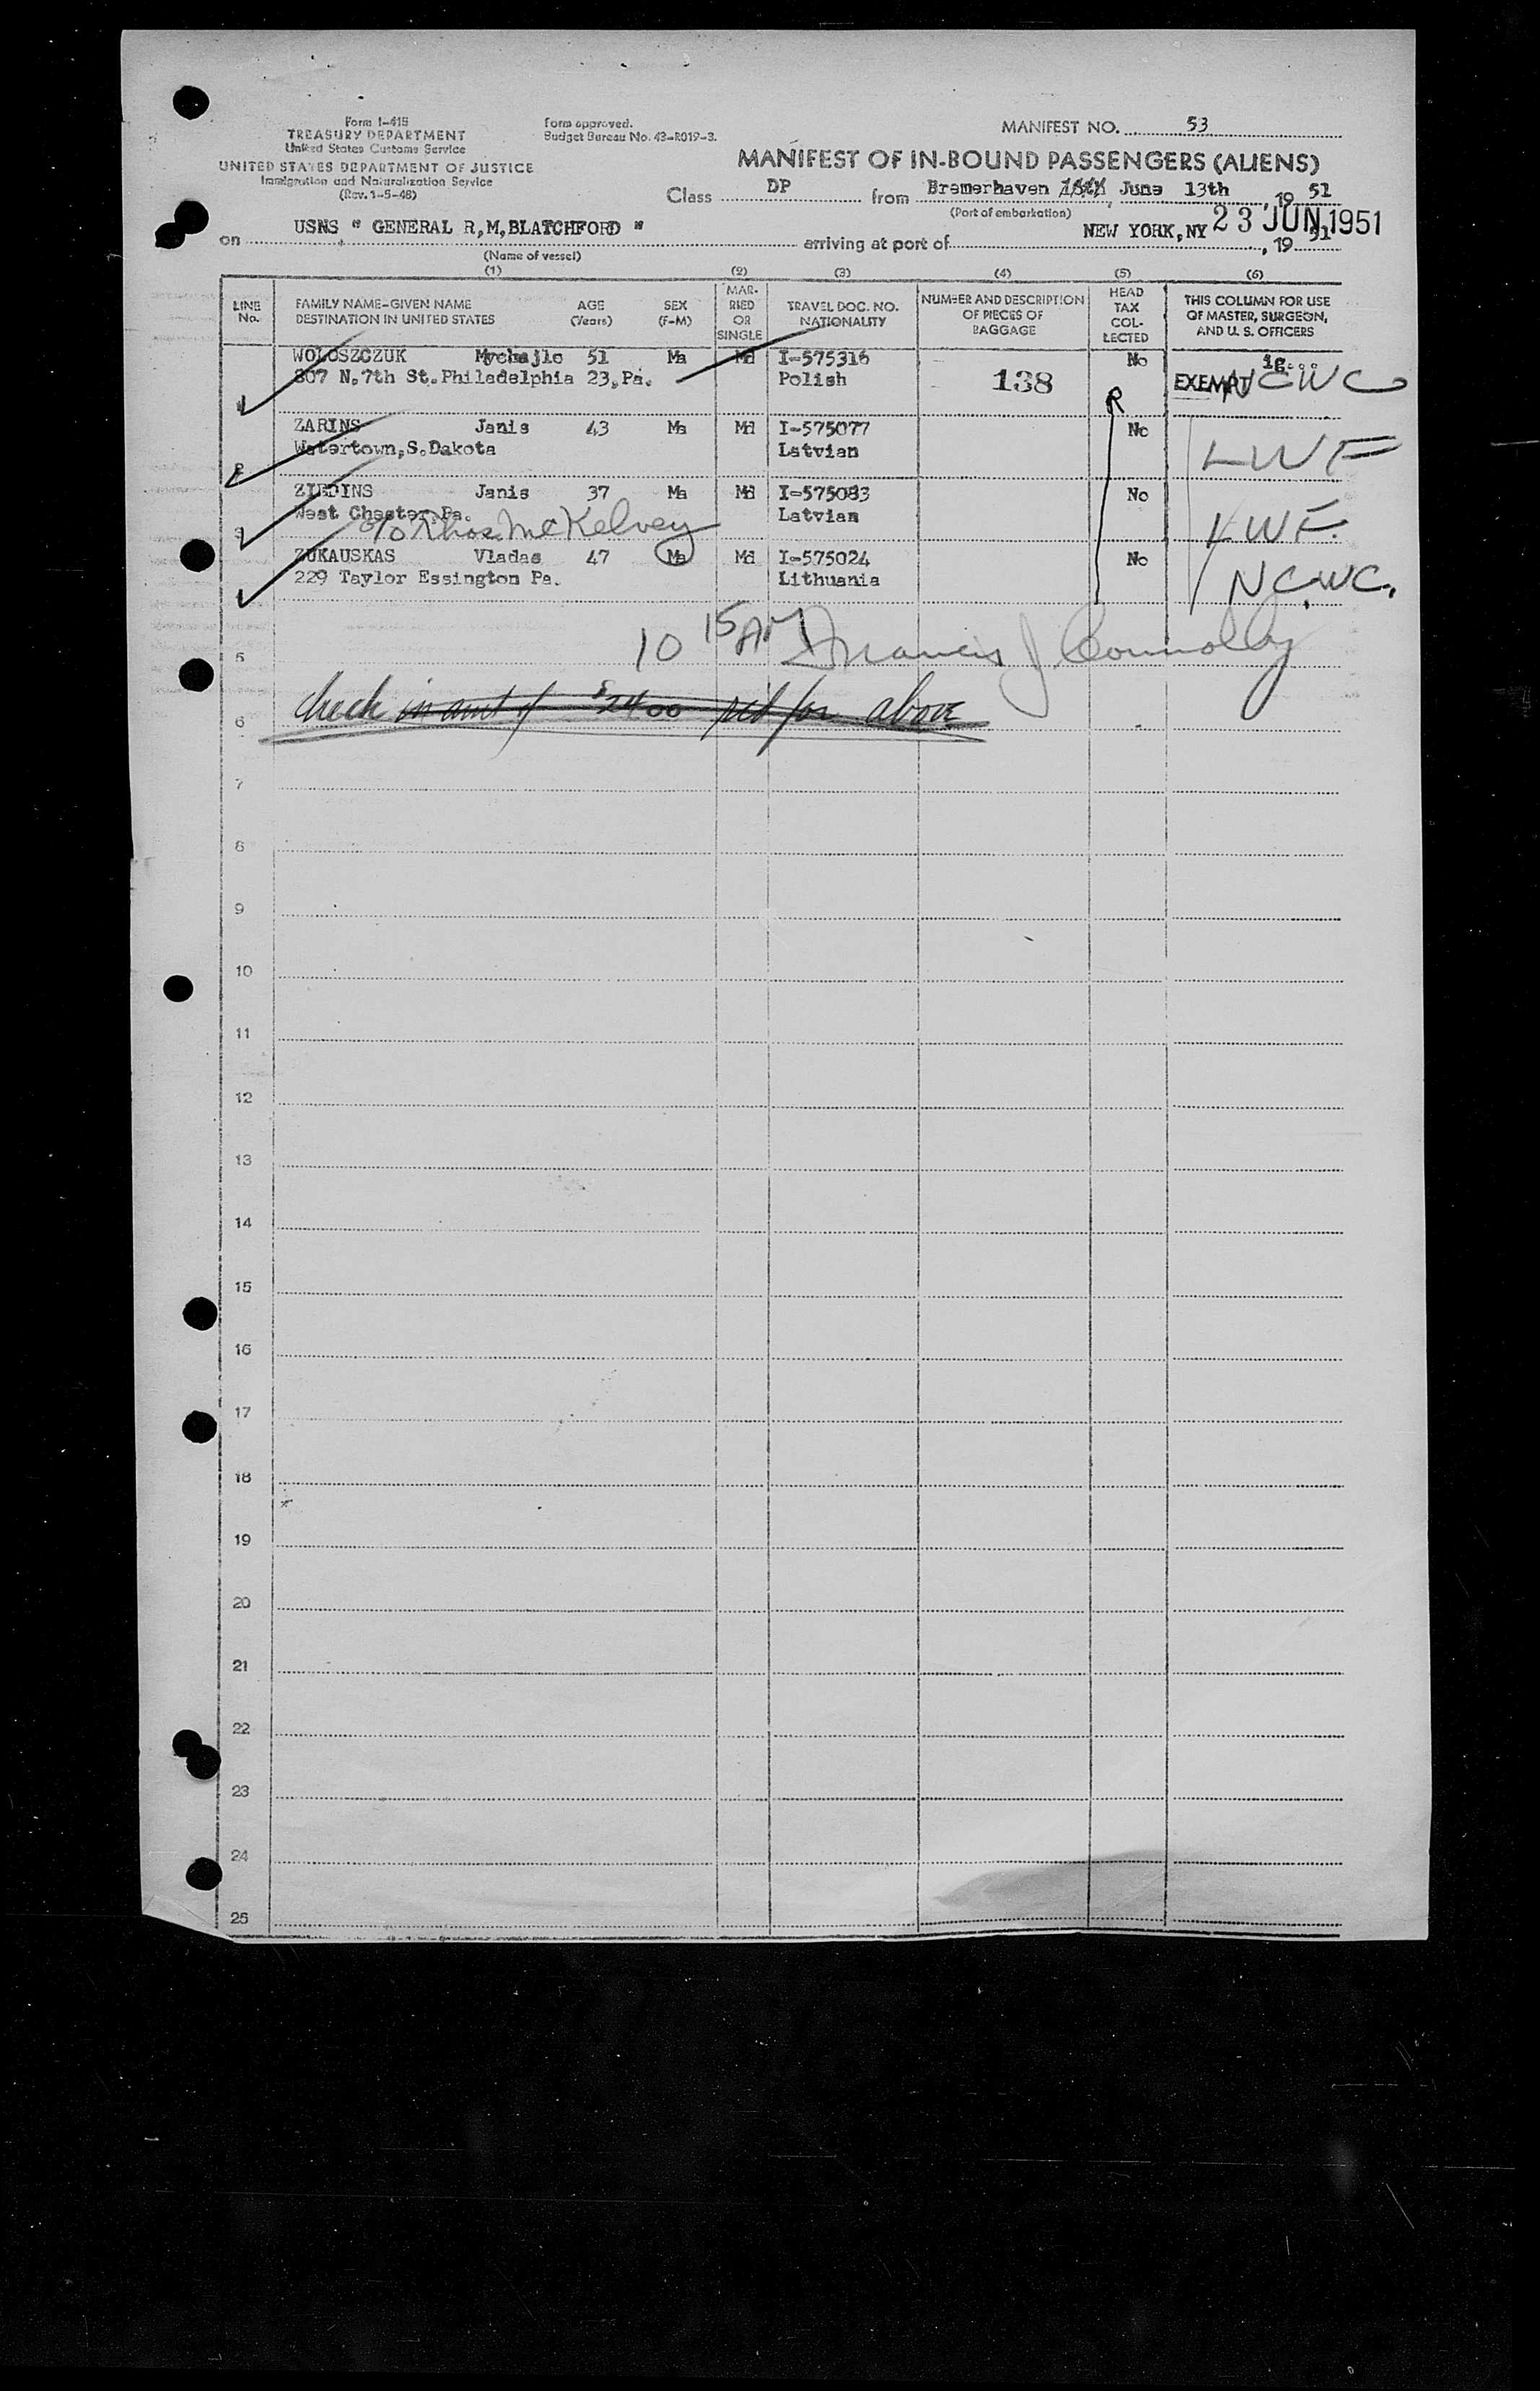 Form I-415
TREASURY DEPARTMENT
United States Customs Service
UNITED STATES DEPARTMENT OF JUSTICE
Immigration and Naturalization Service
(Rev. 1-5-48)
Form approved.
Budget Bureau No. 43-R019-3.
MANIFEST NO. 53
MANIFEST OF IN-BOUND PASSENGERS (ALIENS)
Class DP from Bremerhaven , June 13th , 19 51
(Port of embarkation)
on USNS " GENERAL R,M,BLATCHFORD " arriving at port of NEW YORK, NY 23 JUN 1951 , 19 51
(Name of vessel)
(1) (2) (3) (4) (5) (6)
LINE No. FAMILY NAME-GIVEN NAME DESTINATION IN UNITED STATES AGE (Years) SEX (F-M) MAR-RIED OR SINGLE TRAVEL DOC. NO. NATIONALITY NUMBER AND DESCRIPTION OF PIECES OF BAGGAGE HEAD TAX COL-LECTED THIS COLUMN FOR USE OF MASTER, SURGEON, AND U. S. OFFICERS
WOLOSZCZUK Mychajlo 51 Ma Md I-575316 No
807 N.7th St.Philadelphia 23,Pa. Polish 138 EXEMPT NCWC
R
ZARINS Janis 43 Ma Md I-575077 No
2 Watertown,S.Dakota Latvian LWF
ZIEDINS Janis 37 Ma Md I-575083 No
3 West Chester,Pa. Latvian LWF.
c/o Thos. McKelvey
ZUKAUSKAS Vladas 47 Ma Md I-575024 No
229 Taylor Essington Pa. Lithuania NCWC.
10 15 AM Francis J Connolly
5
check in amt of $24 00 red for above
6
7
8
9
10
11
12
13
14
15
16
17
18
19
20
21
22
23
24
25